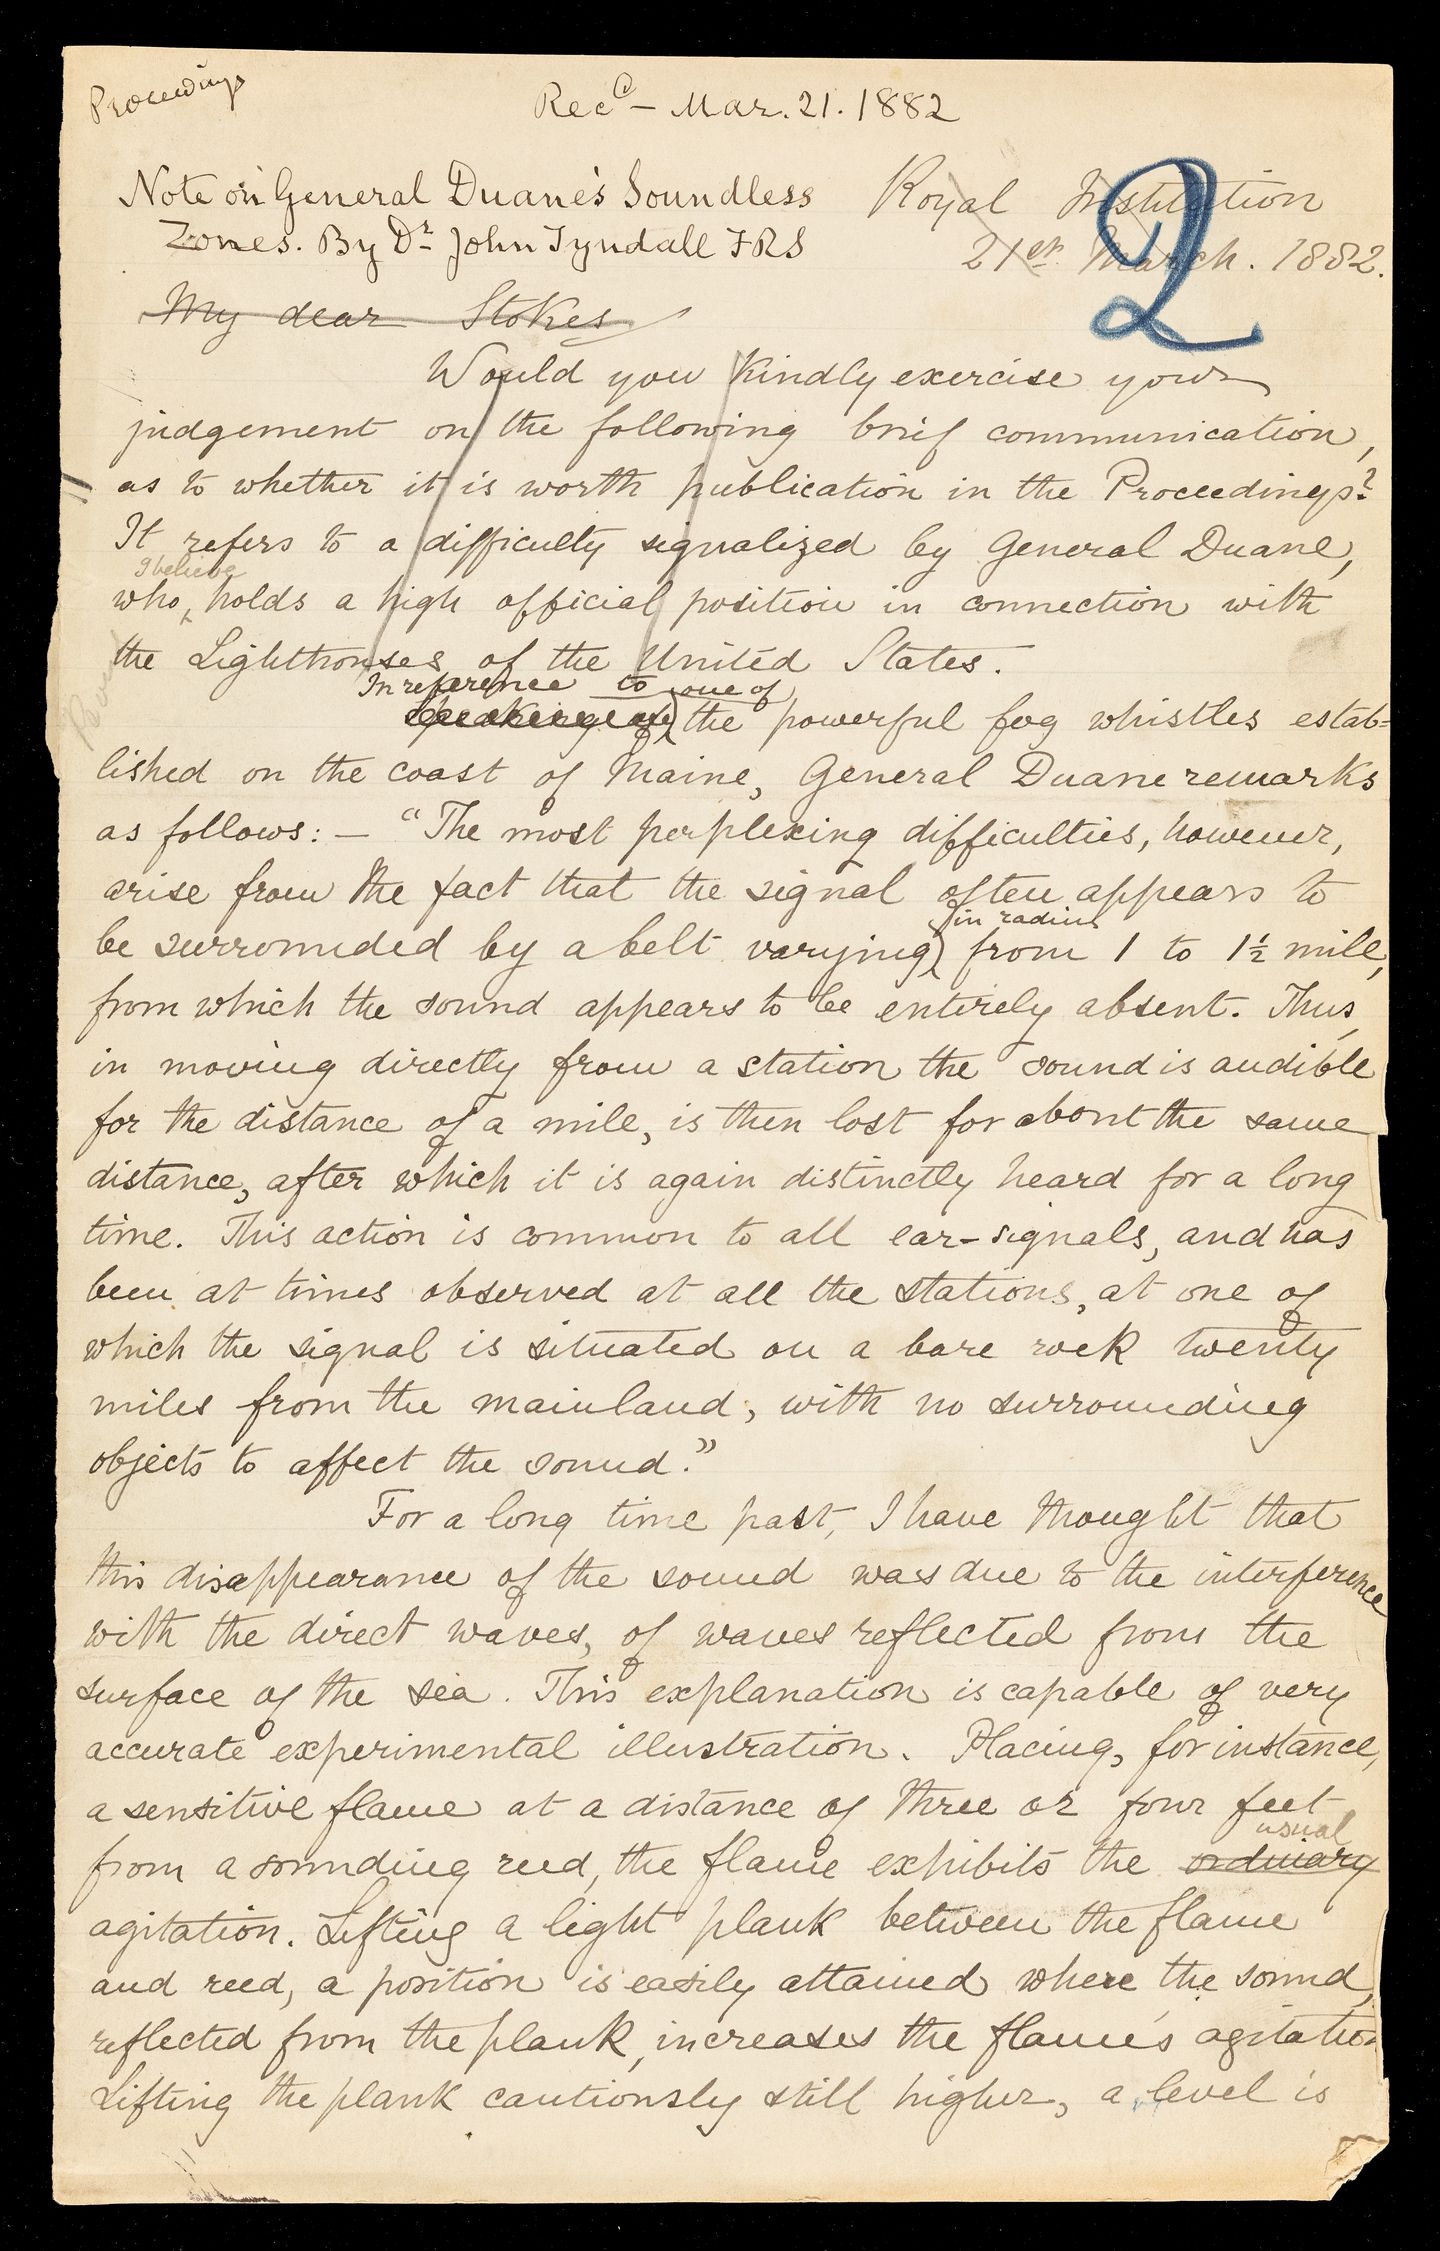 Proceedings
Recd – Mar. 21. 1882
Note on General Duane's Soundless
Zones. By Dr John Tyndall FRS
Royal Institution
21st March. 1882.
2
My dear Stokes
Would you kindly exercise your
judgement on the following brief communication,
as to whether it is worth publication in the Proceedings?
It refers to a difficulty signalized by General Duane,
I believe
who, holds a high official position in connection with
the Lighthouses of the United States.
In reference to one of
Speaking of the powerful fog whistles estab=
lished on the coast of Maine, General Duane remarks
as follows: – "The most perplexing difficulties, however,
arise from the fact that the signal often appears to
in radius
be surrounded by a belt varying from 1 to 1½ mile,
from which the sound appears to be entirely absent. Thus,
in moving directly from a station the sound is audible
for the distance of a mile, is then lost for about the same
distance, after which it is again distinctly heard for a long
time. This action is common to all ear-signals, and has
been at times observed at all the stations, at one of
which the signal is situated on a bare rock twenty
miles from the mainland, with no surrounding
objects to affect the sound."
For a long time past, I have thought that
this disappearance of the sound was due to the interference
with the direct waves, of waves reflected from the
surface of the sea. This explanation is capable of very
accurate experimental illustration. Placing, for instance,
a sensitive flame at a distance of three or four feet
usual
from a sounding reed, the flame exhibits the ordinary
agitation. Lifting a light plank between the flame
and reed, a position is easily attained where the sound,
reflected from the plank, increases the flame's agitation
Lifting the plank cautiously still higher, a level is